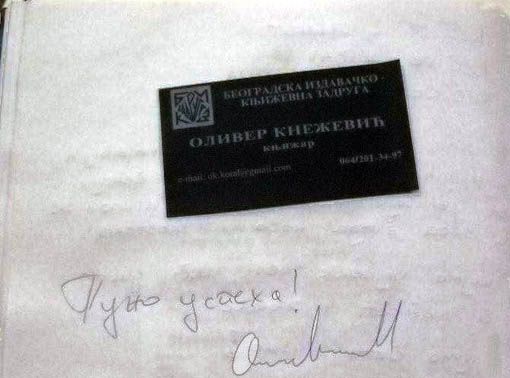 БЕОГРАДСКА ИЗДАВАЧКО -
КЊИЖЕВНА ЗАДРУГА
ОЛИВЕР КНЕЖЕВИЋ
књижар
064/201-34-97
e-mail: dk.koral@gmail.com
Пуно успеха!